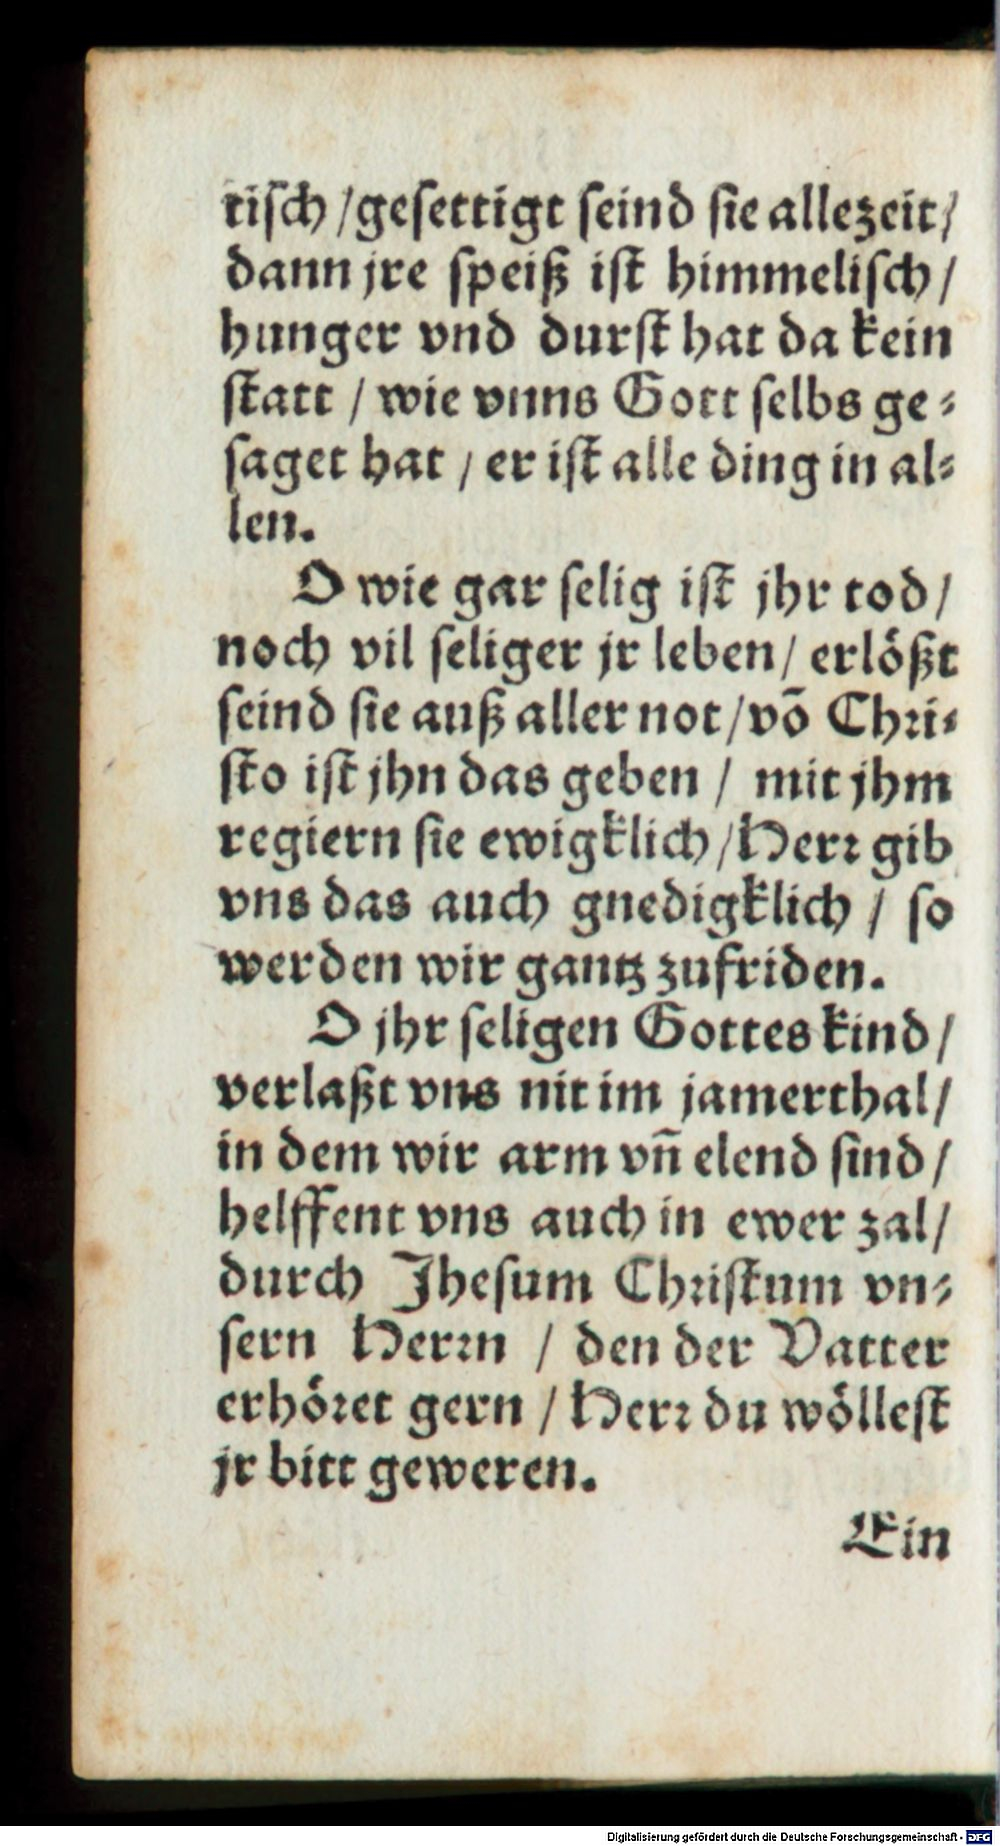 tisch / gesettigt seind sie allezeit /
dann jre speiß ist himmelisch /
hunger vnd durst hat da kein
statt / wie vnns Gott selbs ge⸗
saget hat / er ist alle ding in al⸗
len.
O wie gar selig ist jhr tod /
noch vil seliger jr leben / erlößt
seind sie auß aller not / võ Chri⸗
sto ist jhn das geben / mit jhm
regiern sie ewigklich / Herr gib
vns das auch gnedigklich / so
werden wir gantz zufriden.
O jhr seligen Gottes kind /
verlaßt vns nit im jamerthal /
in dem wir arm vñ elend sind /
helffent vns auch in ewer zal /
durch Jhesum Christum vn⸗
sern Herrn / den der Vatter
erhöret gern / Herr du wöllest
jr bitt geweren.
Ein
Digitalisierung gefördert durch die Deutsche Forschungsgemeinschaft - DFG